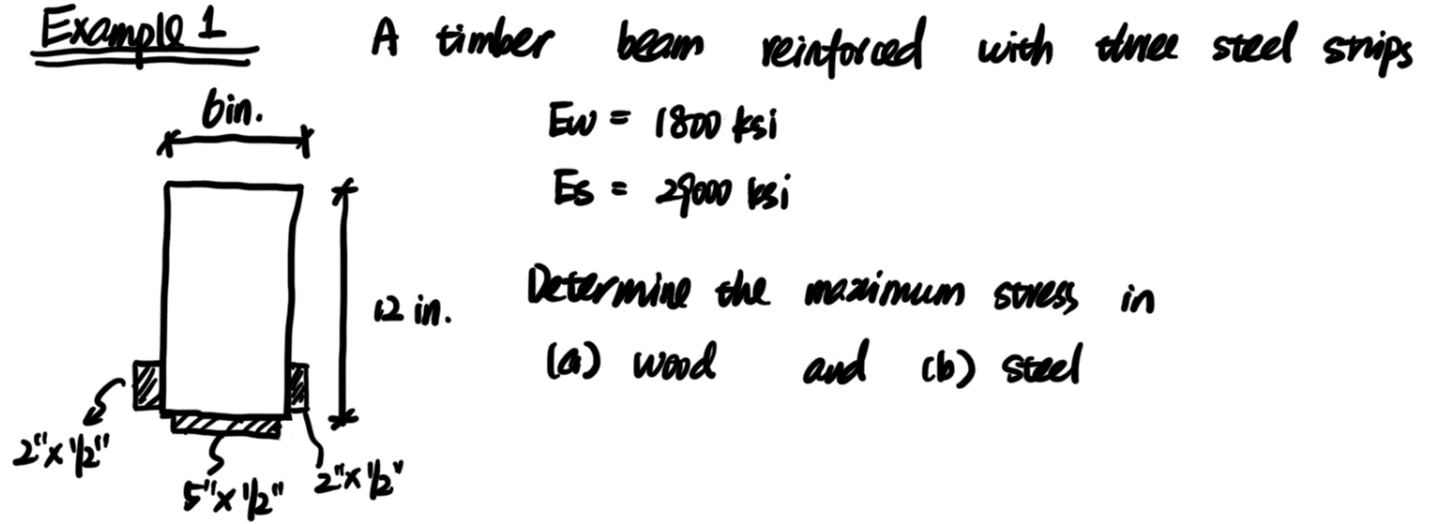 Example 1 A timber beam reinforced with three steel strips
6in.
Ew = 1800 ksi
Es = 29000 ksi
12 in.
Determine the maximum stress in
(a) wood and (b) steel
2"x 1/2"
5"x 1/2"
2"x 1/2"